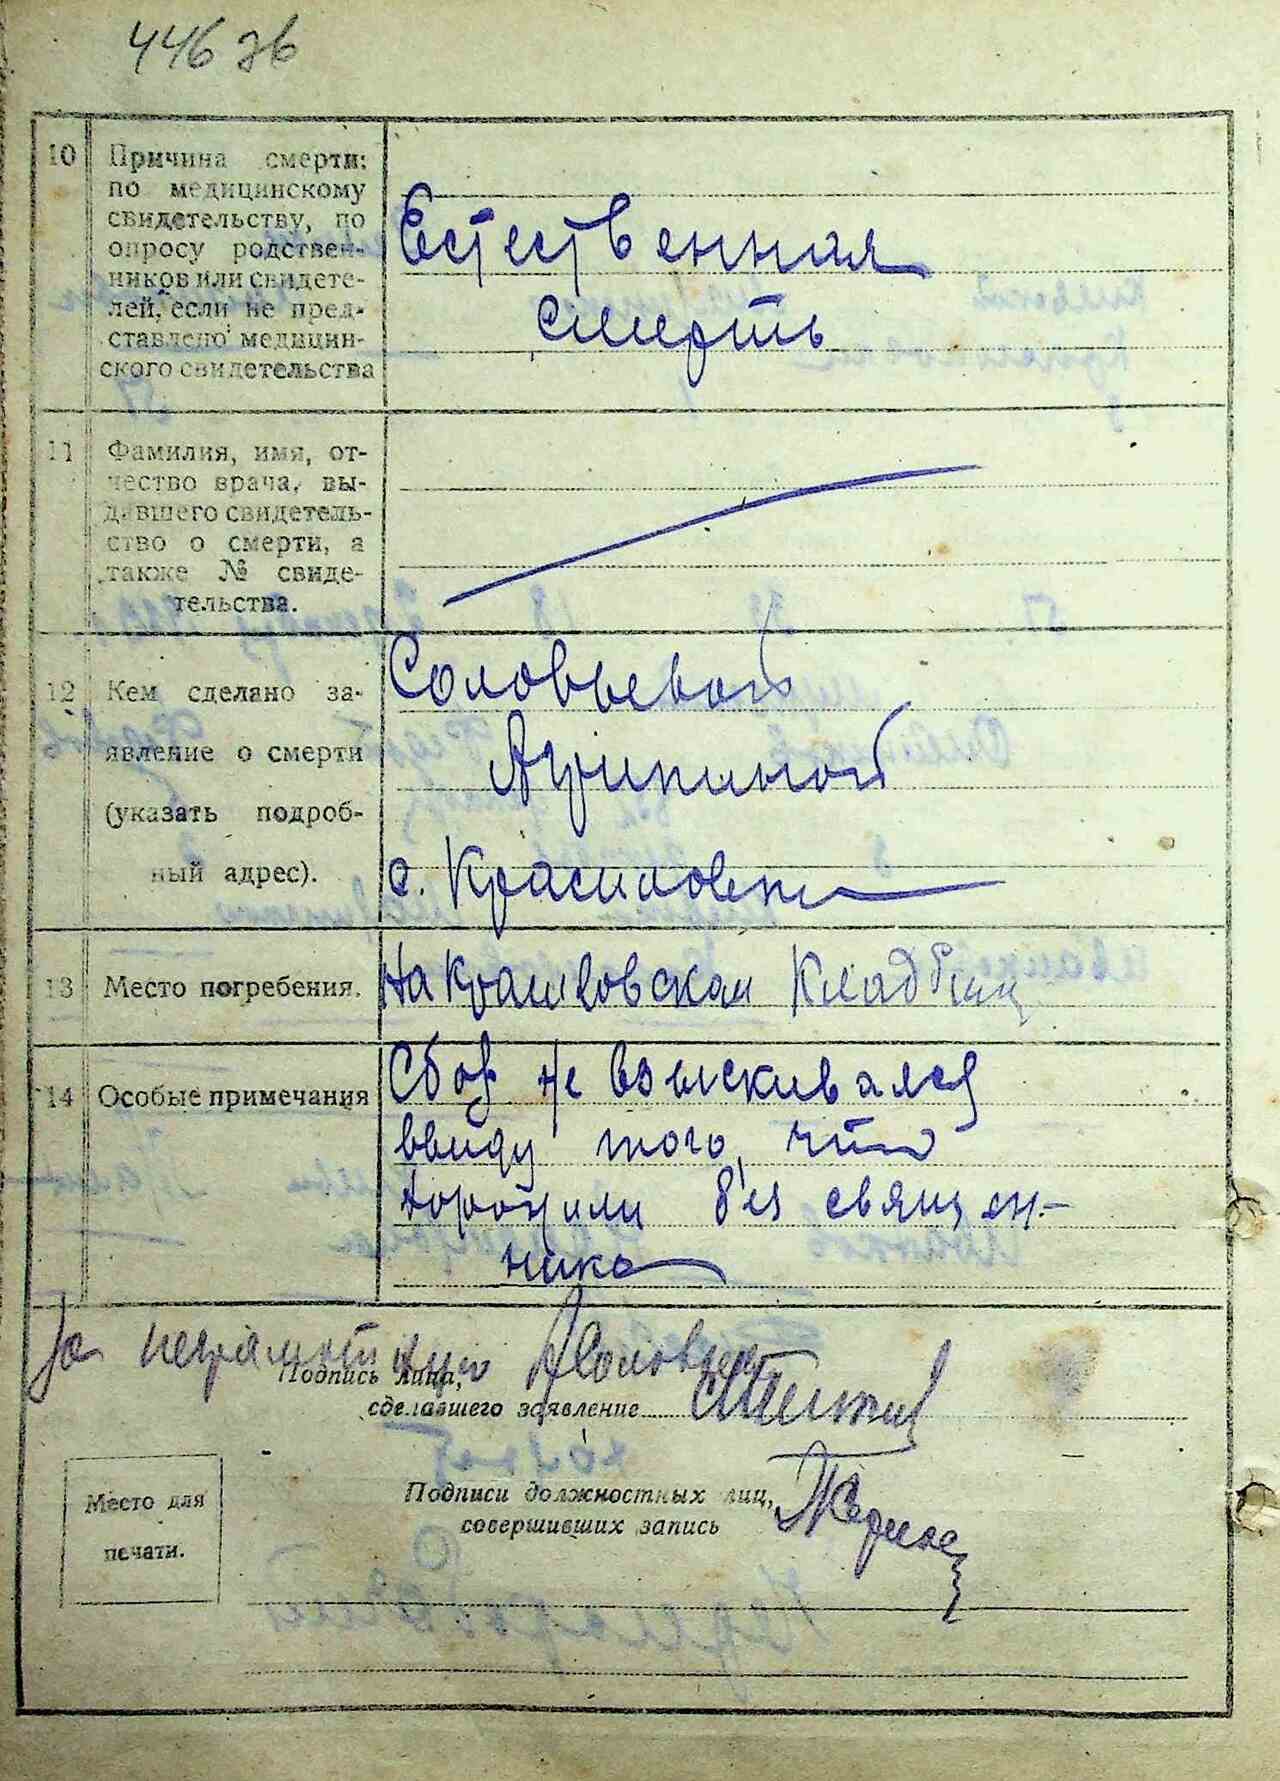 446 зв
10
Причина смерти:
по медицинскому
свидетельству, по
опросу родствен-
ников или свидете-
лей, если не пред-
ставлено медицин-
ского свидетельства
Естественная
смерть
11
Фамилия, имя, от-
чество врача, вы-
давшего свидетель-
ство о смерти, а
также № свиде-
тельства.
12
Кем сделано за-
явление о смерти
(указать подроб-
ный адрес).
Соловьевой
Агрипиной
с. Красиловка
13
Место погребения.
На Красиловском Кладбищ
14
Особые примечания
Сбор не взыскивался
ввиду того, что
хоронили без священ-
ника
За неграмотную А Соловьев
Подпись лица,
сделавшего заявление
Подписи должностных лиц,
совершивших запись
Место для
печати.